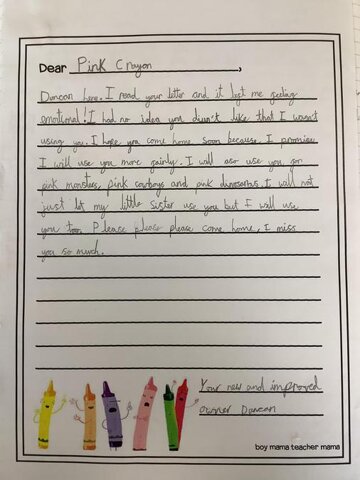 Dear Pink Crayon,
Duncan here. I read your letter and it left me feeling
emotional! I had no idea you didn't like that I wasn't
using you. I hope you come home soon because I promise
I will use you more fairly. I will also use you for
pink monsters, pink cowboys and pink dinosaurs. I will not
just let my little sister use you but I will use
you too. Please please please come home, I miss
you so much.
Your new and improved
owner Duncan
boy mama teacher mama